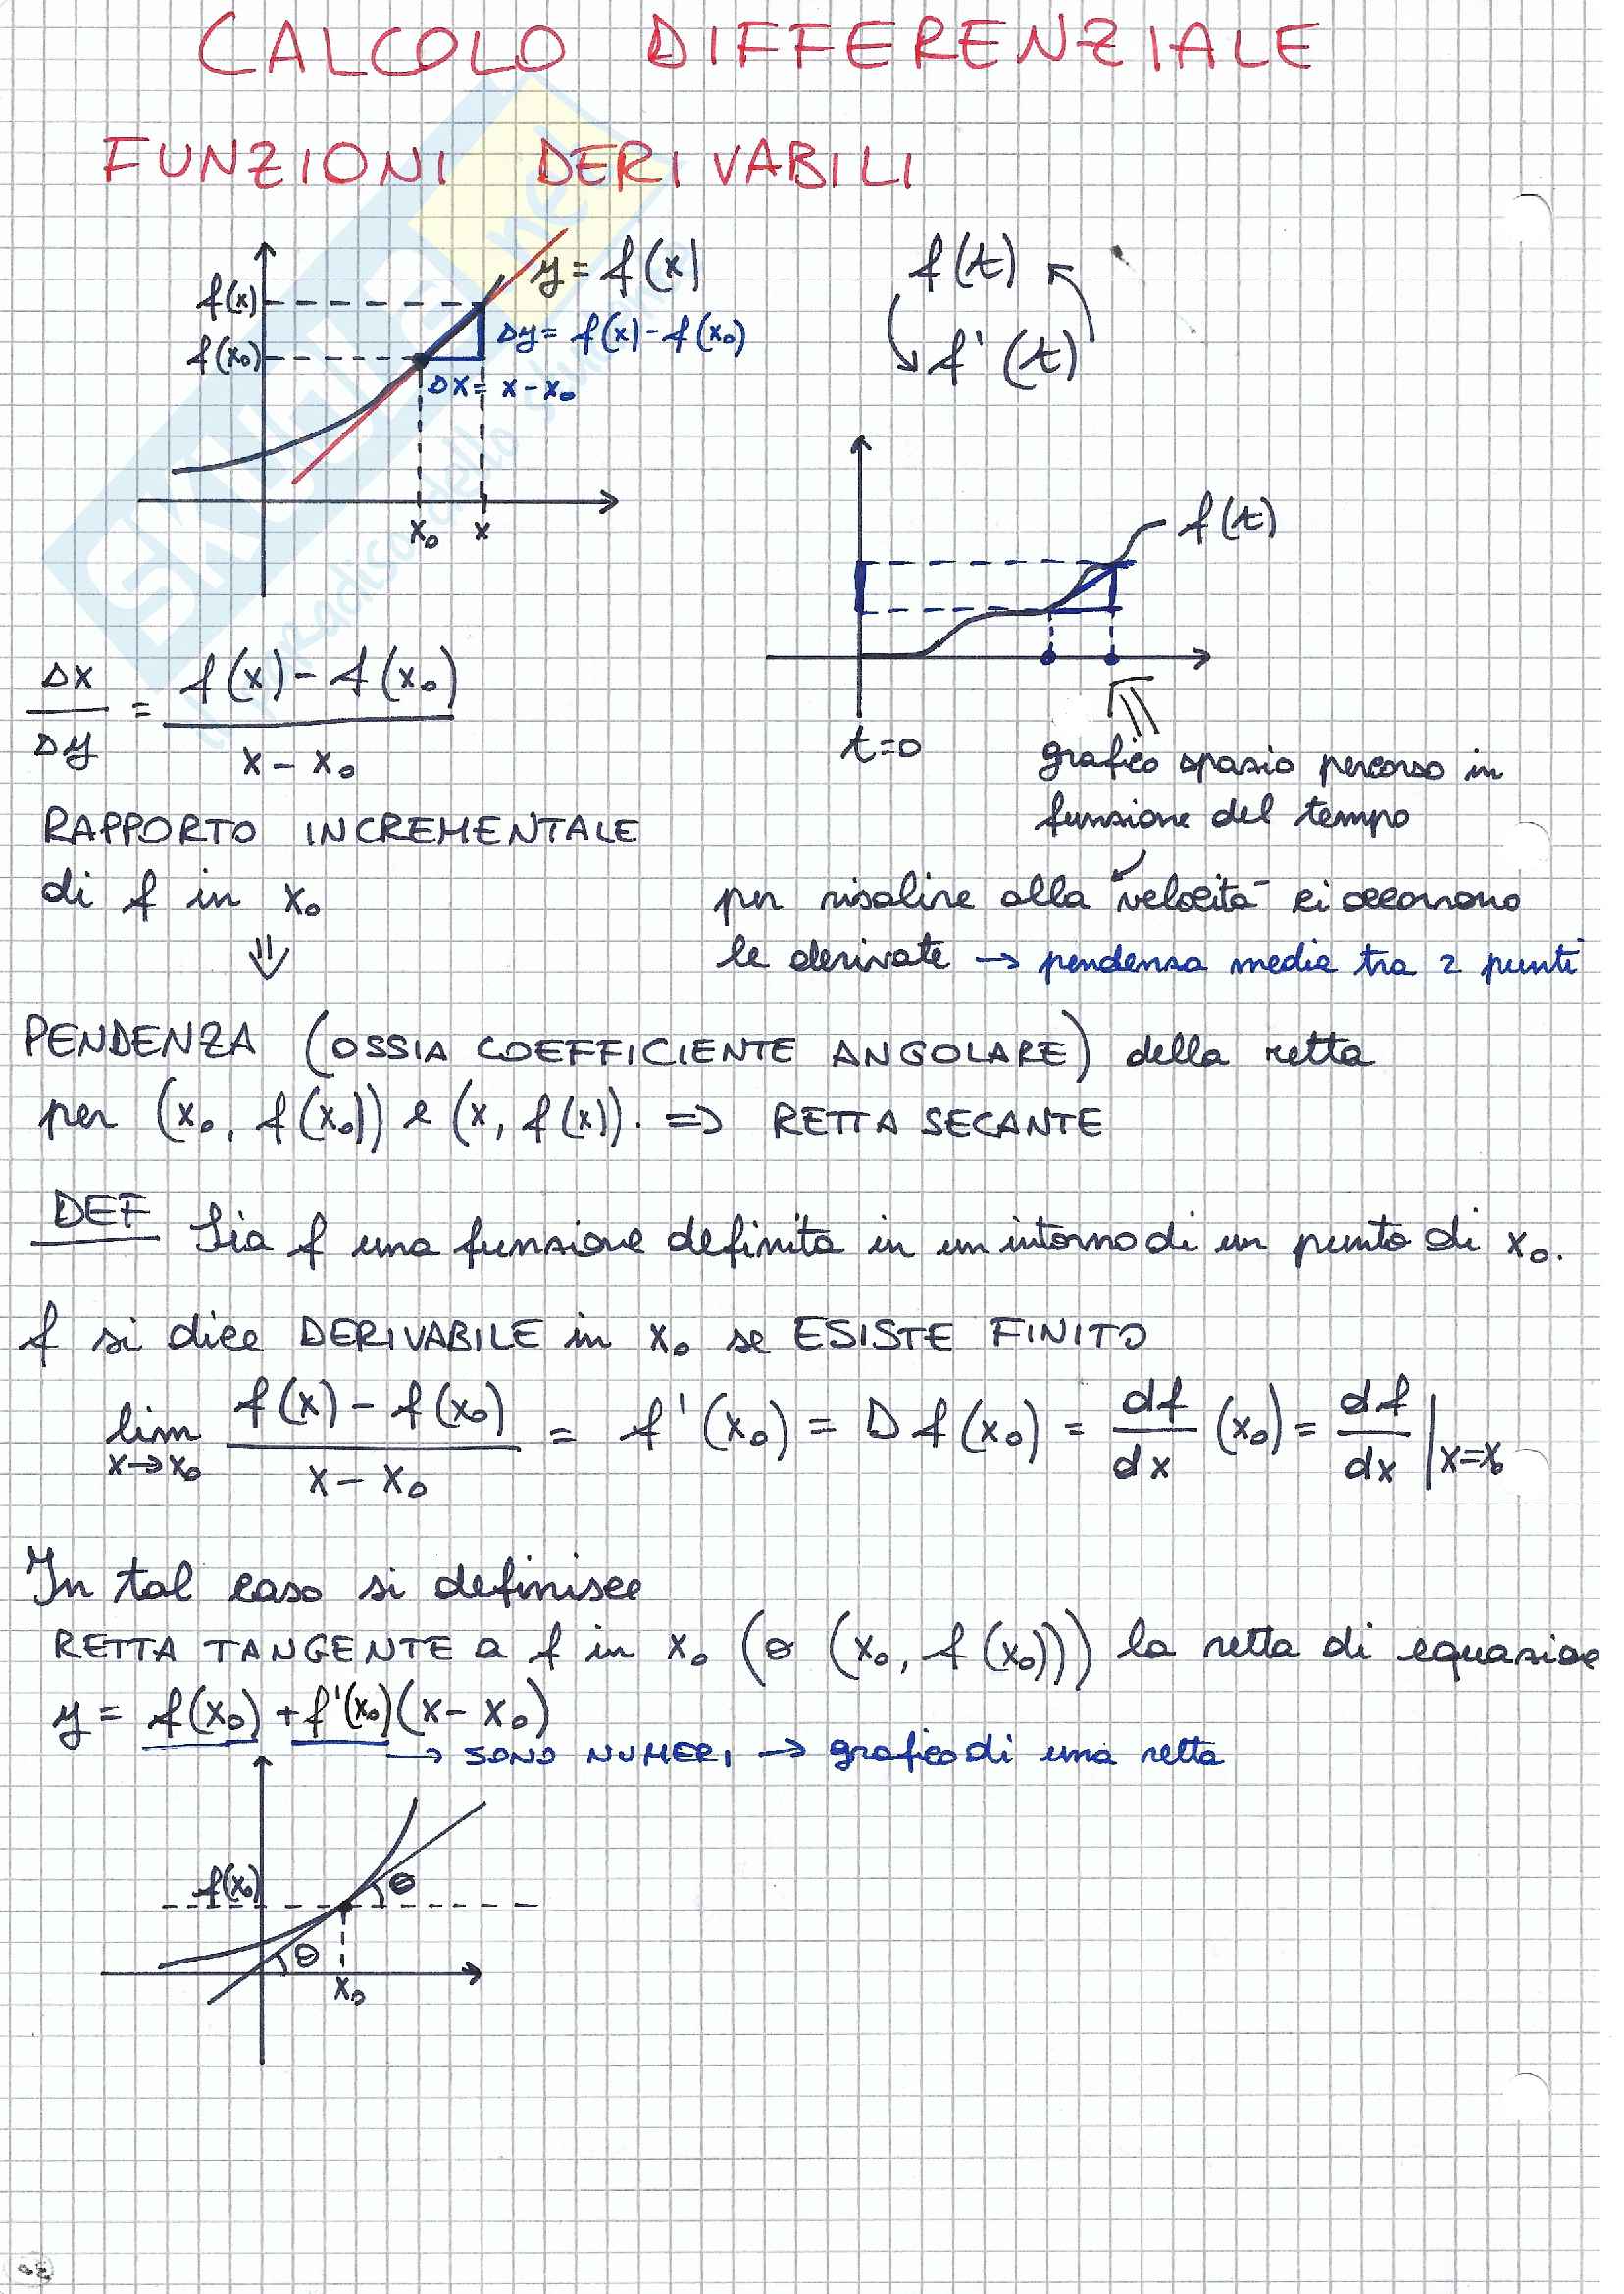 CALCOLO DIFFERENZIALE
FUNZIONI DERIVABILI
y = f(x)
f(x)
f(x₀)
Δy = f(x) - f(x₀)
Δx = x - x₀
x₀ x
f(t)
f'(t)
f(t)
t=0
grafico spazio percorso in
funzione del tempo
Δx/Δy = (f(x) - f(x₀))/(x - x₀)
RAPPORTO INCREMENTALE
di f in x₀
⇓
per risalire alla velocità ci occorrono
le derivate → pendenza media tra 2 punti
PENDENZA (OSSIA COEFFICIENTE ANGOLARE) della retta
per (x₀, f(x₀)) e (x, f(x)). ⇒ RETTA SECANTE
DEF Sia f una funzione definita in un intorno di un punto di x₀.
f si dice DERIVABILE in x₀ se ESISTE FINITO
lim x→x₀ (f(x) - f(x₀))/(x - x₀) = f'(x₀) = D f(x₀) = df/dx (x₀) = df/dx |x=x₀
In tal caso si definisce
RETTA TANGENTE a f in x₀ (o (x₀, f(x₀))) la retta di equazione
y = f(x₀) + f'(x₀)(x - x₀)
→ SONO NUMERI → grafico di una retta
f(x₀)
θ
θ
x₀
SKUOLA.net